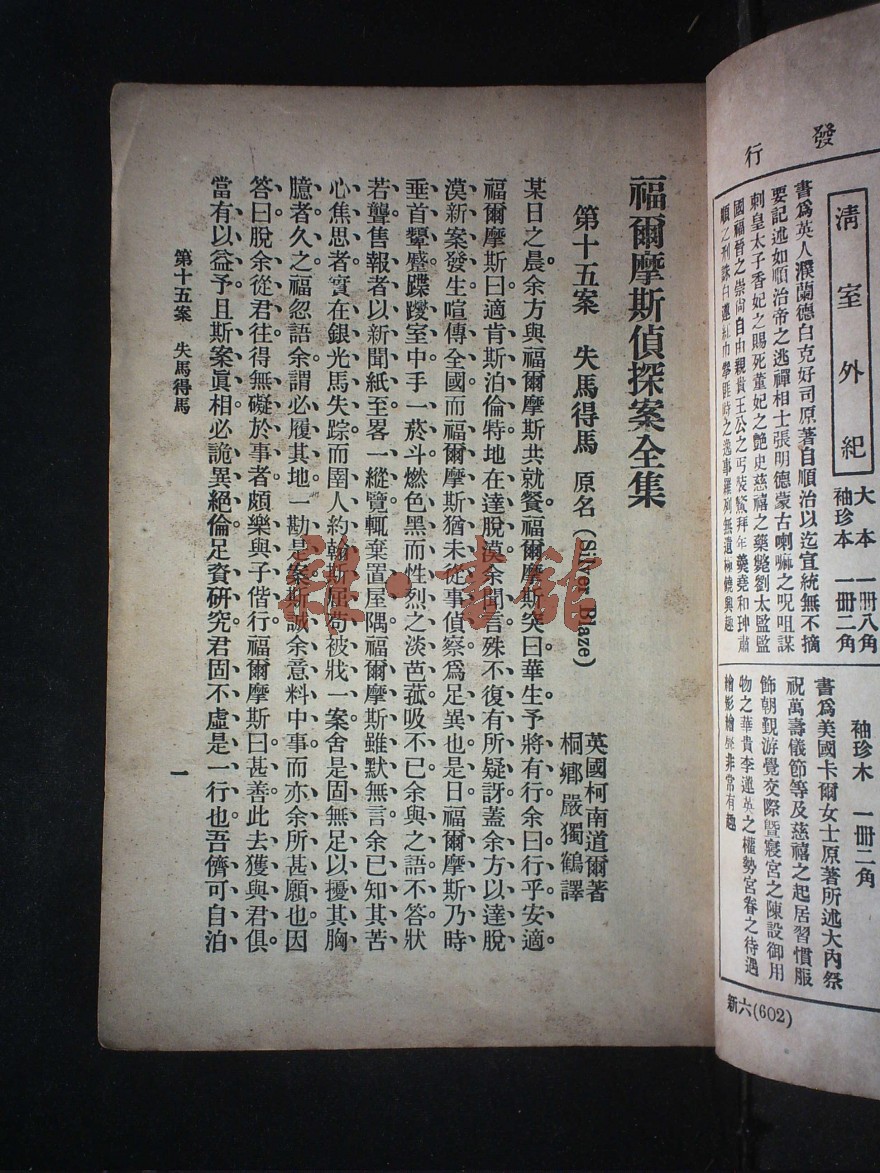 發行
清室外紀
大本 一冊八角
袖珍本 一冊二角
書爲英人濮蘭德白克好司原著自順治以迄宣統無不摘
要記述如順治帝之逃禪相士張明德蒙古喇嘛之呪咀謀
刺皇太子香妃之賜死董妃之艶史慈禧之藥斃劉太監監
國福晉之崇尚自由親貴王公之丐裝驁拜年羹堯和珅肅
順之刑誅白蓮紅巾拳匪時之逸事羅列無遺極饒興趣
袖珍木 一冊二角
書爲美國卡爾女士原著所述大內祭
祝萬壽儀節等及慈禧之起居習慣服
飾朝覲游覺交際曁寢宮之陳設御用
物之華貴李蓮英之權勢宮眷之待遇
繪影繪聲非常有趣
新六(602)
福爾摩斯偵探案全集
第十五案 失馬得馬 原名(Silver Blaze)
英國柯南道爾著
桐鄉嚴獨鶴譯
某日之晨余方與福爾摩斯共就餐福爾摩斯突曰華生予將有行余曰行乎安適、
福爾摩斯曰適肯斯泊倫特地在達脫漠余聞言殊不復有所疑訝蓋余方以達脫、
漠新案發生喧傳全國而福爾摩斯猶未從事偵察爲足異也是日福爾摩斯乃時、
垂首顰蹙蹀躞室中手一菸斗燃色黑而性烈之淡芭菰吸不已余與之語不答狀、
若聾售報者以新聞紙至畧一縱覽輒棄置屋隅福爾摩斯雖默無言余已知其苦、
心焦思者實在銀光馬失踪而圉人約翰斯屈苟被戕一案舍是固無足以擾其胸、
臆者久之福忽語余謂必履其地一勘是案斯誠余意料中事而亦余所甚願也因、
答曰脫余從君往得無礙於事者頗樂與子偕行福爾摩斯曰甚善此去獲與君俱、
當有以益予且斯案眞相必詭異絕倫足資研究君固不虛是一行也吾儕可自泊、
第十五案 失馬得馬
一